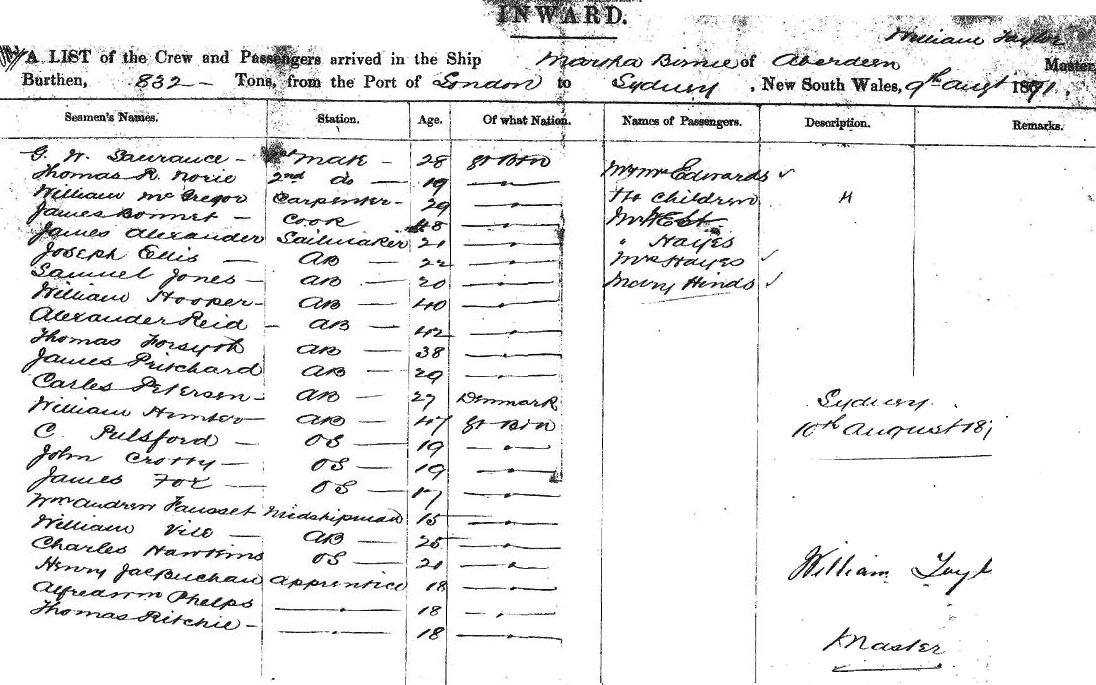 INWARD.
William Taylor
A LIST of the Crew and Passengers arrived in the Ship Martha Birnie of Aberdeen Master,
Burthen, 832 Tons, from the Port of London to Sydney, New South Wales, 9th Augt 1871.
Seamen's Names. Station. Age. Of what Nation. Names of Passengers. Description. Remarks.
G. W. 1st Mate 28 Gt Btn
Thomas R. Norie 2nd do 19 Mr Mrs Edwards
William McGregor Carpenter 29 children
James Bonnet Cook 48
James Alexander Sailmaker 21 " Hayes
Joseph Ellis AB 22 Mrs Hayes
Samuel Jones AB 20 Mary Hinds
William Hooper AB 40
Alexander Reid AB 42
Thomas Forsyth AB 38
James Pritchard AB 29
Carles Petersen AB 27 Denmark Sydney
William Hunter AB 47 Gt Btn 10th August 187
C. Pulsford OS 19
John Crotty OS 19
James Fox OS 17
Wm Andrew Fausset Midshipman 15
William AB 25
Charles Hawkins OS 21 William Tayl
Henry Jas Buchan Apprentice 18
Alfred Wm Phelps 18
Thomas Ritchie 18 Master